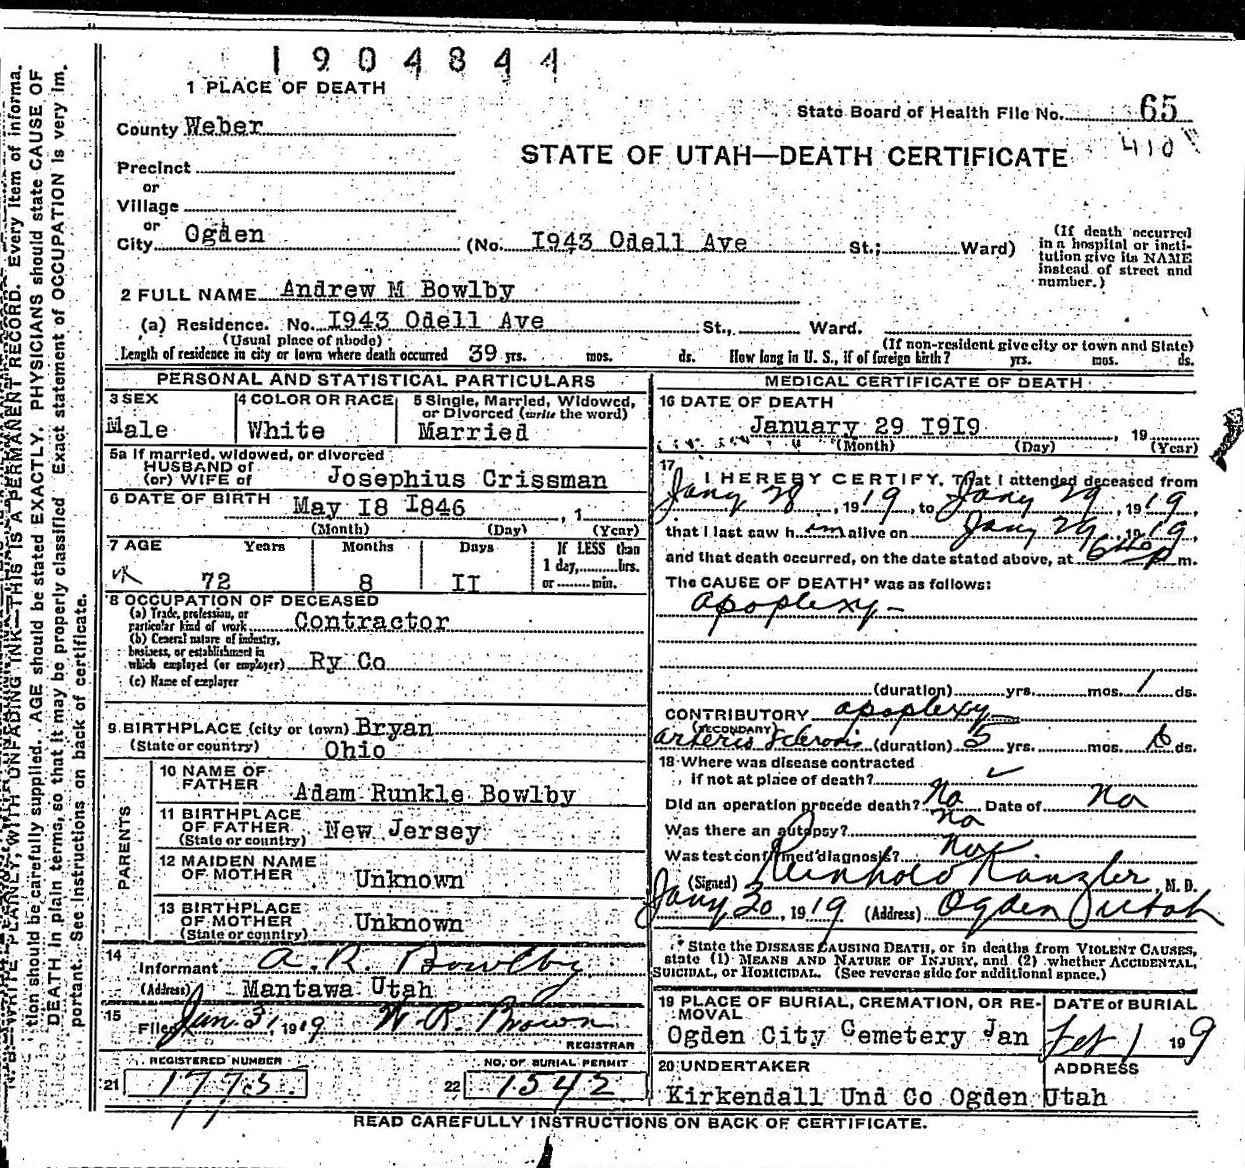 1904844
1 PLACE OF DEATH
State Board of Health File No. 65
410
County Weber
STATE OF UTAH—DEATH CERTIFICATE
Precinct
or
Village
or
City Ogden (No. I943 Odell Ave St.; Ward)
(If death occurred
in a hospital or insti-
tution give its NAME
instead of street and
number.)
2 FULL NAME Andrew M Bowlby
(a) Residence. No. I943 Odell Ave St., Ward.
(Usual place of abode) (If non-resident give city or town and State)
Length of residence in city or town where death occurred 39 yrs. mos. ds. How long in U. S., if of foreign birth? yrs. mos. ds.
PERSONAL AND STATISTICAL PARTICULARS
3 SEX 4 COLOR OR RACE 5 Single, Married, Widowed,
or Divorced (write the word)
Male White Married
5a If married, widowed, or divorced
HUSBAND of
(or) WIFE of Josephius Crissman
6 DATE OF BIRTH May I8 I846 , 1
(Month) (Day) (Year)
7 AGE Years Months Days If LESS than
1 day, hrs.
or min.
72 8 II
8 OCCUPATION OF DECEASED
(a) Trade, profession, or
particular kind of work Contractor
(b) General nature of industry,
business, or establishment in
which employed (or employer) Ry Co
(c) Name of employer
9 BIRTHPLACE (city or town) Bryan
(State or country) Ohio
PARENTS
10 NAME OF
FATHER Adam Runkle Bowlby
11 BIRTHPLACE
OF FATHER New Jersey
(State or country)
12 MAIDEN NAME
OF MOTHER Unknown
13 BIRTHPLACE
OF MOTHER Unknown
(State or country)
14
Informant A. R. Bowlby
(Address) Mantawa Utah
15
Filed Jan. 31 1919 W. R. Brown
REGISTRAR
REGISTERED NUMBER NO. OF BURIAL PERMIT
21 1775 22 1542
MEDICAL CERTIFICATE OF DEATH
16 DATE OF DEATH
January 29 I9I9 , 19
(Month) (Day) (Year)
17
I HEREBY CERTIFY, That I attended deceased from
Jany 28 , 1919, to Jany 29 , 1919,
that I last saw him alive on Jany 29 , 1919,
and that death occurred, on the date stated above, at m.
The CAUSE OF DEATH* was as follows:
apoplexy
(duration) yrs. mos. 1 ds.
CONTRIBUTORY apoplexy
(SECONDARY)
arterio sclerosis (duration) 5 yrs. mos. ds.
18 Where was disease contracted
if not at place of death?
Did an operation precede death? No Date of No
Was there an autopsy? No
Was test confirmed diagnosis?
(Signed) Reinhold Kanzler, M. D.
Jany 30, 1919 (Address) Ogden Utah
* State the DISEASE CAUSING DEATH, or in deaths from VIOLENT CAUSES,
state (1) MEANS AND NATURE OF INJURY, and (2) whether ACCIDENTAL,
SUICIDAL, or HOMICIDAL. (See reverse side for additional space.)
19 PLACE OF BURIAL, CREMATION, OR RE-
MOVAL
DATE of BURIAL
Ogden City Cemetery Jan Feb 1 19 9
20 UNDERTAKER ADDRESS
Kirkendall Und Co Ogden Utah
READ CAREFULLY INSTRUCTIONS ON BACK OF CERTIFICATE.
WRITE PLAINLY, WITH UNFADING INK—THIS IS A PERMANENT RECORD. Every item of informa-
tion should be carefully supplied. AGE should be stated EXACTLY. PHYSICIANS should state CAUSE OF
DEATH in plain terms, so that it may be properly classified Exact statement of OCCUPATION is very im-
portant. See instructions on back of certificate.